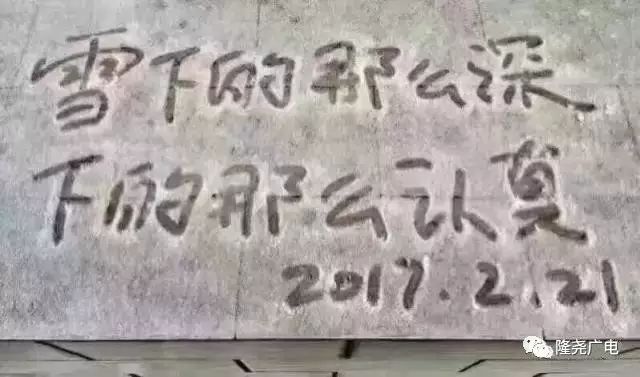 雪下的那么深
下的那么认真
2017.2.21
隆尧广电